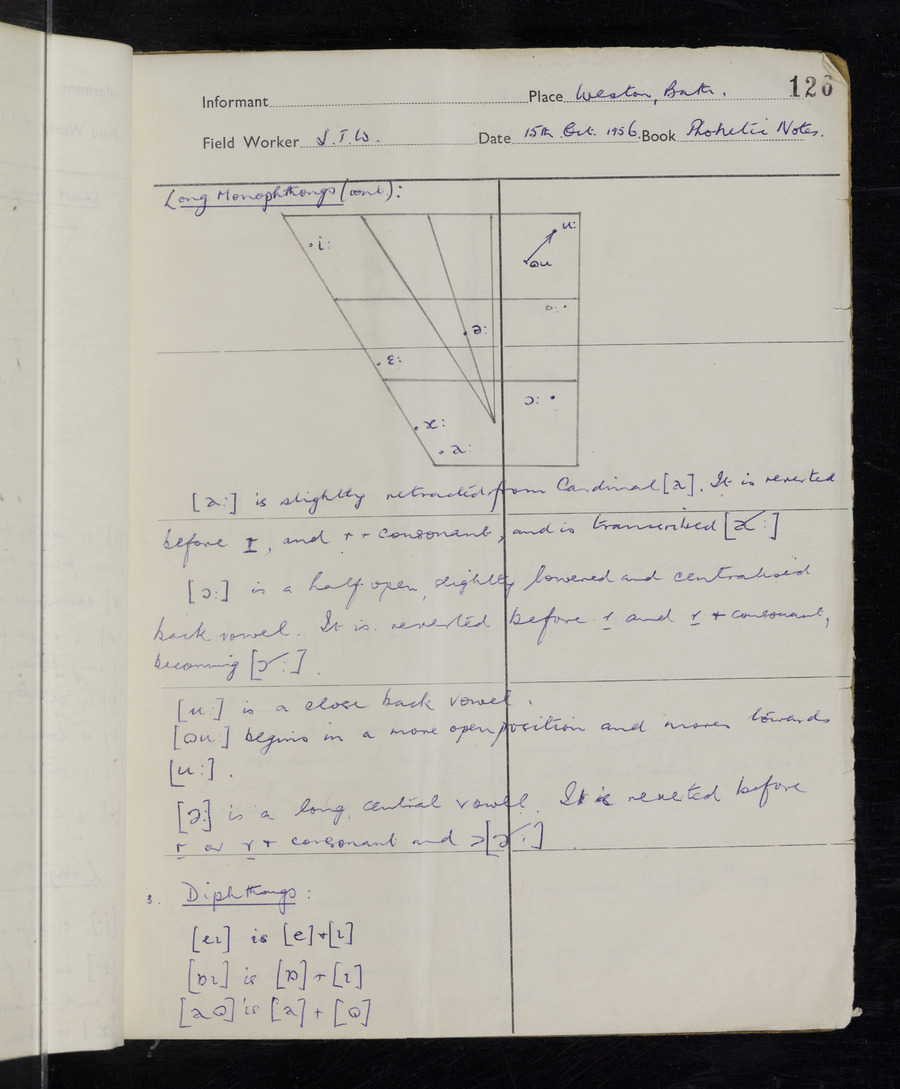 Informant Place Weston, Bath. 126
Field Worker S.T.W. Date 15th Oct. 1956. Book Phonetic Notes.
Long Monophthongs (cont.):
i:
u:
ɷu
o:
ə:
ɛ:
ɔ:
æ:
a:
[a:] is slightly retracted from Cardinal [a]. It is reverted
before r, and r + consonant, and is transcribed [a˞:]
[ɔ:] is a half open, slightly lowered and centralised
back vowel. It is reverted before r and r + consonant,
becoming [ɔ˞:].
[u:] is a close back vowel.
[ɷu:] begins in a more open position and moves towards
[u:].
[ə:] is a long central vowel. It is reverted before
r or r + consonant and > [ə˞:]
3. Diphthongs:
[eɩ] is [e]+[ɩ]
[ɒɩ] is [ɒ]+[ɩ]
[aɷ] is [a]+[ɷ]